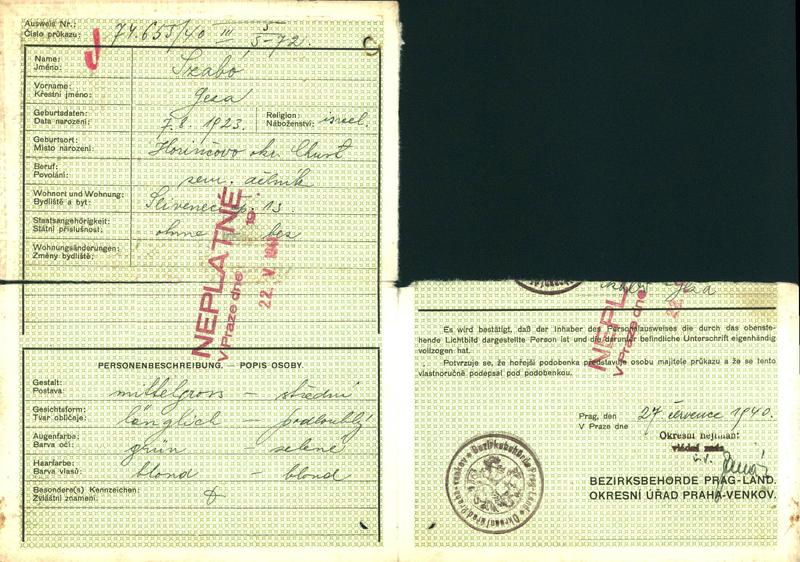 Ausweis Nr.:
Číslo průkazu: 74.655/40 III 5
5-72.
Name:
Jméno: Szabó
Vorname:
Křestní jméno: Gesa
Geburtsdaten:
Data narození: 7.8. 1923. Religion:
Náboženství: israel.
Geburtsort:
Místo narození: Horinčovo okr. Chust
Beruf:
Povolání: zem. dělník
Wohnort und Wohnung:
Bydliště a byt: Slivenec 13.
Staatsangehörigkeit:
Státní příslušnost: ohne - bez
Wohnungsänderungen:
Změny bydliště:
NEPLATNÉ
V Praze dne 22. V. 19
PERSONENBESCHREIBUNG. — POPIS OSOBY.
Gestalt:
Postava: mittelgross - střední
Gesichtsform:
Tvar obličeje: länglich - podlouhlý
Augenfarbe:
Barva očí: grün zelené
Haarfarbe:
Barva vlasů: blond - blond
Besondere(s) Kennzeichen:
Zvláštní znamení:
Gesa
Es wird bestätigt, daß der Inhaber des Personalausweises die durch das obenste-
hende Lichtbild dargestellte Person ist und die darunter befindliche Unterschrift eigenhändig
vollzogen hat.
Potvrzuje se, že hořejší podobenka představuje osobu majitele průkazu a že se tento
vlastnoručně podepsal pod podobenkou.
NEPL
V Praze dne 22.
Prag, den
V Praze dne 27 července 1940.
Okresní hejtman:
vládní rada
v. z.
BEZIRKSBEHÖRDE PRAG-LAND.
OKRESNÍ ÚŘAD PRAHA-VENKOV.
Bezirksbehörde Prag-Land • Okresní úřad Praha-venkov